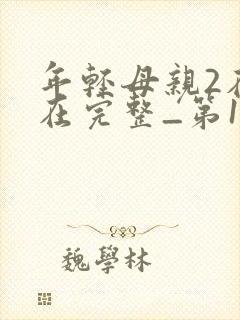 年輕母親2在
在完整_第1
魏學林